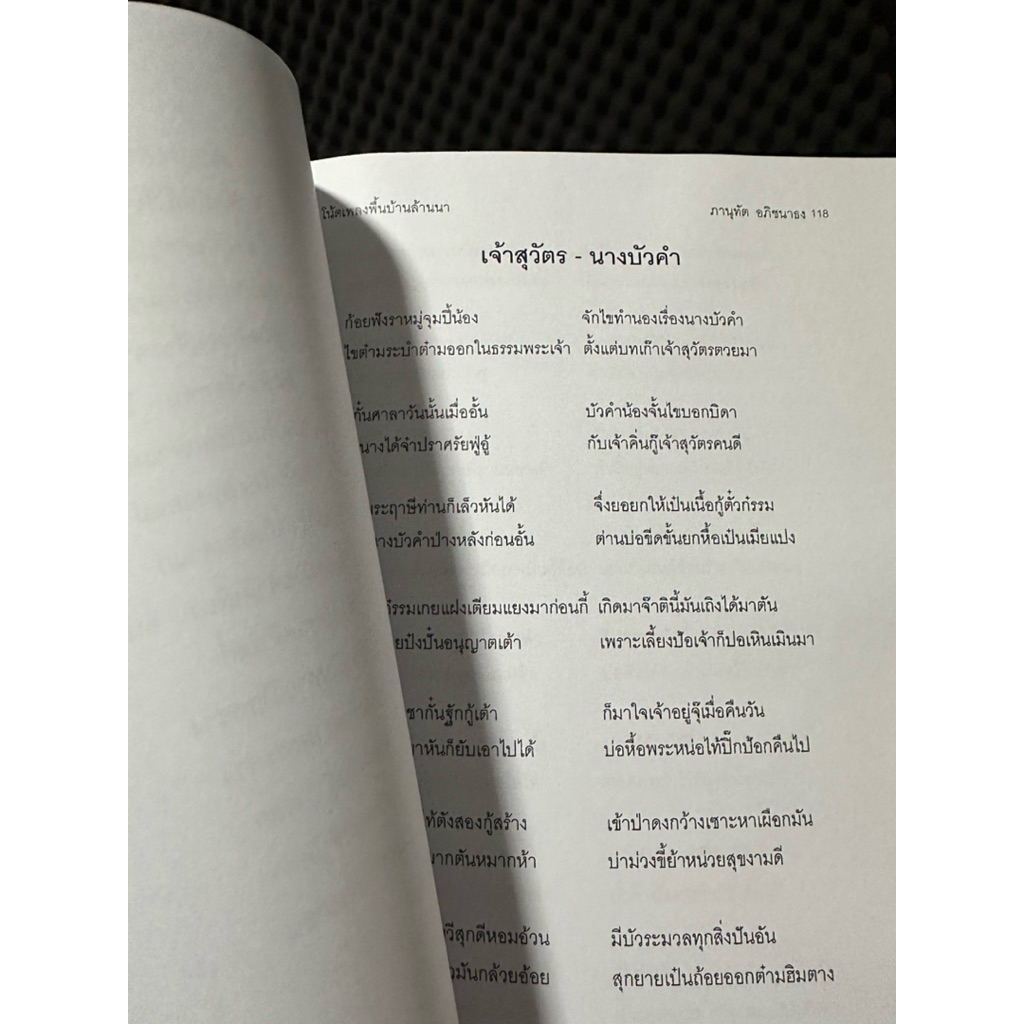 โน้ตเพลงพื้นบ้านล้านนา ภานุทัต อภิชนาธง 118
เจ้าสุวัตร - นางบัวคำ
ก้อยฟังราหมู่จุมปี้น้อง จักไขทำนองเรื่องนางบัวคำ
ไขต๋ามระบำต๋ามออกในธรรมพระเจ้า ตั้งแต่บทเก๊าเจ้าสุวัตรตวยมา
กั๋นศาลาวันนั้นเมื่ออั้น บัวคำน้องจั้นไขบอกบิดา
นางได้จ๋าปราศรัยฟู่อู้ กับเจ้าคิ่นกู๊เจ้าสุวัตรคนดี
พระฤาษีท่านก็เล็วหันได้ จึ่งยอยกให้เป๋นเนื้อกู้ตั๋วก๋รรม
นางบัวคำป่างหลังก่อนอั้น ต่านบ่อขีดขั้นยกหื้อเป๋นเมียแปง
ก๋รรมเกยแฝงเตียมแยงมาก่อนกี้ เกิดมาจ๊าตินี้มันเถิงได้มาตัน
ปังปั๋นอนุญาตเต้า เพราะเลี้ยงป้อเจ้าก็ปอเหินเมินมา
กั๋นฐักกู้เต้า ก็มาใจเจ้าอยู่จุ๊เมื่อคืนวัน
หันก็ยับเอาไปได้ บ่อหื้อพระหน่อไท้ปิ๊กป้อกคืนไป
ตังสองกู้สร้าง เข้าป่าดงกว้างเซาะหาเผือกมัน
หมากตันหมากห้า บ่าม่วงขี้ย้าหน่วยสุขงามดี
สุกดีหอมอ้วน มีบัวระมวลทุกสิ่งปันอัน
มันกล้วยอ้อย สุกยายเป๋นถ้อยออกต๋ามฮิมตาง